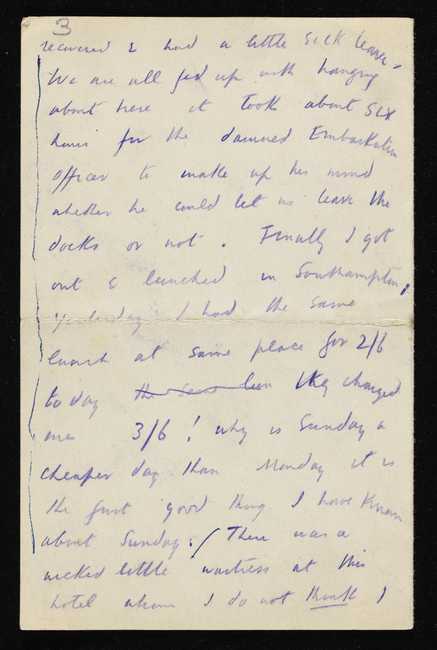 3
recovered & had a little sick leave.
We are all fed up with hanging
about here it took about six
hours for the damned Embarkation
officer to make up his mind
whether he could let us leave the
docks or not. Finally I got
out & lunched in Southampton,
yesterday I had the same
lunch at same place for 2/6
to day they charged
me 3/6! why is Sunday a
cheaper day than Monday it is
the first good thing I have known
about Sunday. / There was a
wicked little waitress at this
hotel whom I do not think I